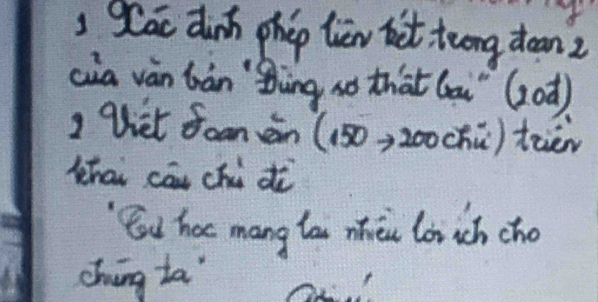 1 Xác định phép liên kết trong đoạn 2
của văn bản "Đừng sợ thất bại" (2,0đ)
2 Viết đoạn văn (150 → 200 chữ) triển
khai câu chủ đề
"Tự học mang lại nhiều lợi ích cho
chúng ta"